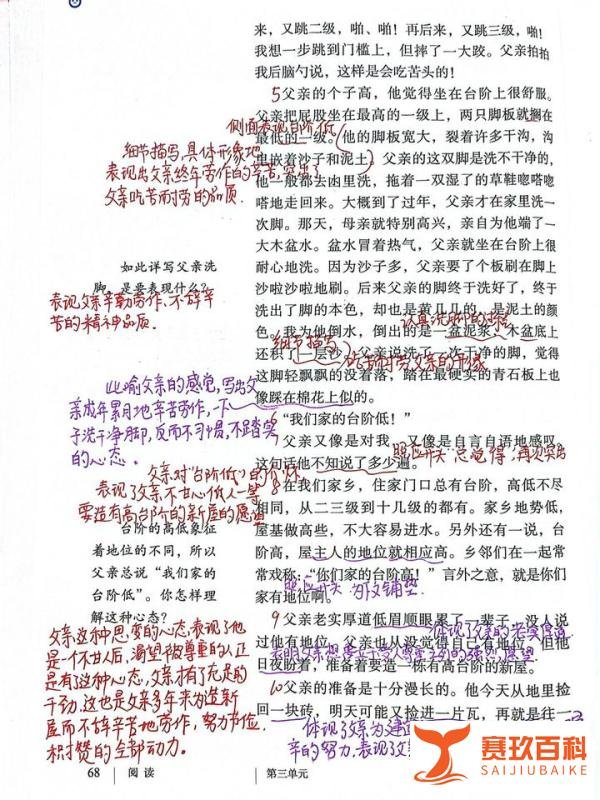 来，又跳二级，啪、啪！再后来，又跳三级，啪！
我想一步跳到门槛上，但摔了一大跤。父亲拍拍
我后脑勺说，这样是会吃苦头的！
5父亲的个子高，他觉得坐在台阶上很舒服。
父亲把屁股坐在最高的一级上，两只脚板就搁在
最低的一级。他的脚板宽大，裂着许多干沟，沟
里嵌着沙子和泥土。父亲的这双脚是洗不干净的，
他一般都去凼里洗，拖着一双湿了的草鞋唿嗒唿
嗒地走回来。大概到了过年，父亲才在家里洗一
次脚。那天，母亲就特别高兴，亲自为他端了一
大木盆水。盆水冒着热气，父亲就坐在台阶上很
耐心地洗。因为沙子多，父亲要了个板刷在脚上
沙啦沙啦地刷。后来父亲的脚终于洗好了，终于
洗出了脚的本色，却也是黄几几的，是泥土的颜
色。我为他倒水，倒出的是一盆泥浆，木盆底上
还积了一层沙。父亲说洗了一次干净的脚，觉得
这脚轻飘飘的没着落，踏在最硬实的青石板上也
像踩在棉花上似的。
6“我们家的台阶低！”
7父亲又像是对我，又像是自言自语地感叹。
这句话他不知说了多少遍。
8在我们家乡，住家门口总有台阶，高低不尽
相同，从二三级到十几级的都有。家乡地势低，
屋基做高些，不大容易进水。另外还有一说，台
阶高，屋主人的地位就相应高。乡邻们在一起常
常戏称：“你们家的台阶高！”言外之意，就是你们
家有地位啊。
9父亲老实厚道低眉顺眼累了一辈子，没人说
过他有地位，父亲也从没觉得自己有地位。但他
日夜盼着，准备着要造一栋有高台阶的新屋。
10父亲的准备是十分漫长的。他今天从地里捡
回一块砖，明天可能又捡进一片瓦，再就是往一
侧面表现台阶低
细节描写，具体形象地
表现出父亲终年劳作的辛苦，突出了
父亲吃苦耐劳的品质
如此详写父亲洗
脚，是要表现什么？
表现父亲辛勤劳作，不辞辛
苦的精神品质。
细节描写
吃苦耐劳父亲的形象
比喻父亲的感觉，写出父
亲成年累月地辛苦劳作，一下
子洗干净脚，反而不习惯，不踏实
的心态。
照应开头“总觉得”再次突出
父亲对“台阶低”的
表现了父亲不甘心低人一等
要造有高台阶的新屋的愿望
台阶的高低象征
着地位的不同，所以
父亲总说“我们家的
台阶低”。你怎样理
解这种心态？
照应开头 为下文铺垫
体现了父亲的老实厚道
父亲这种思变的心态，表现了他
是一个不甘人后，渴望被尊重的人，正
是有这种心态，父亲才有了充足的
干劲，这也是父亲多年来为造新
屋而不辞辛苦地劳作，努力节俭，
积攒的全部动力。
体现了父亲为建
辛的努力，表现了父
68 阅读 第三单元
赛玖百科
SAIJIUBAIKE